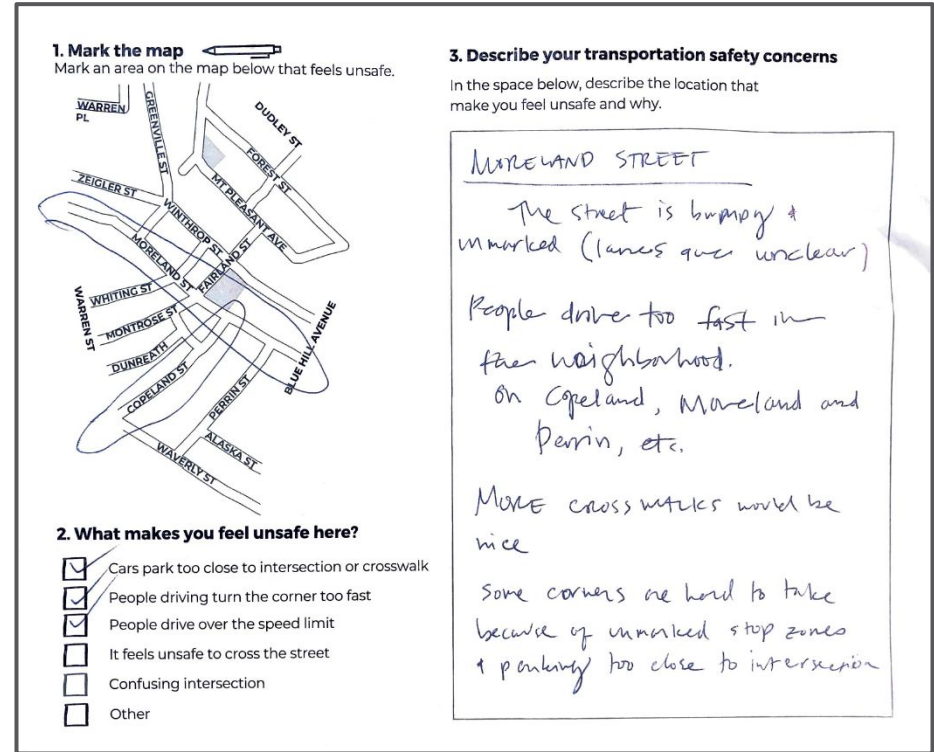 1. Mark the map
Mark an area on the map below that feels unsafe.
WARREN PL
GREENVILLE ST
DUDLEY ST
FOREST ST
MT PLEASANT AVE
ZEIGLER ST
WINTHROP ST
MORELAND ST
FAIRLAND ST
WHITING ST
WARREN ST
MONTROSE ST
DUNREATH
COPELAND ST
PERRIN ST
BLUE HILL AVENUE
ALASKA ST
WAVERLY ST
2. What makes you feel unsafe here?
Cars park too close to intersection or crosswalk
People driving turn the corner too fast
People drive over the speed limit
It feels unsafe to cross the street
Confusing intersection
Other
3. Describe your transportation safety concerns
In the space below, describe the location that
make you feel unsafe and why.
MORELAND STREET
The street is bumpy &
unmarked (lanes are unclear)
People drive too fast in
the neighborhood.
on Copeland, Moreland and
Perrin, etc.
MORE crosswalks would be
nice
Some corners are hard to take
because of unmarked stop zones
& parking too close to intersection